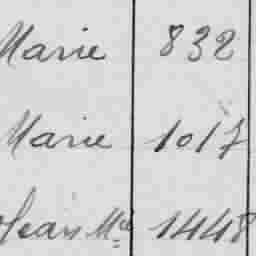 Marie 832
Marie 1017
Jean Mie 1448